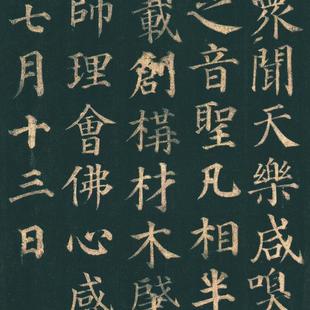 衆聞天樂咸嗅
之音聖凡相半
載創構材木肇
師理會佛心感
七月十三日